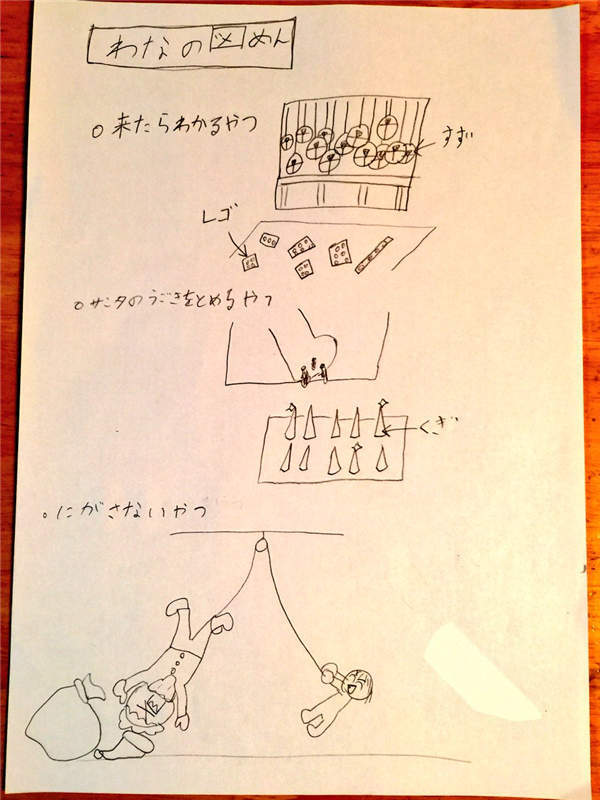 わなの図めん
○来たらわかるやつ
すず
レゴ
○サンタのうごきをとめるやつ
くぎ
○にがさないやつ